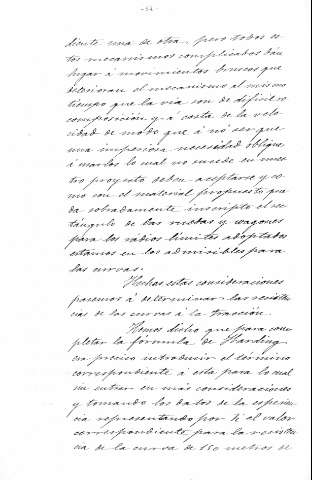 - 54 -
diente una de otra, pero todos es-
tos mecanismos complicados dán
lugar á movimientos bruscos que
deterioran el mecanismo al mismo
tiempo que la via son de dificil re
composición y á costa de la velo-
cidad de modo que á nó ser que
una imperiosa necesidad obligue
á usarlos lo cual no sucede en nues-
tro proyecto deben aceptarse y co-
mo con el material propuesto que
da sobradamente inscripto el rec-
tángulo de las ruedas y wagones
para los radios limites adoptados
estamos en los admisibles para
las curvas.
Hechas estas consideraciones
pasemos á determinar las resisten
cias de las curvas á la tracción.
Hemos dicho que para com-
pletar la fórmula de Harding
era preciso introducir el término
correspondiente á esta para lo cual
sin entrar en más consideraciones
y tomando los datos de la esperien
cia representando por el valor
correspondiente para la resisten
cia de la curva de 150 metros de